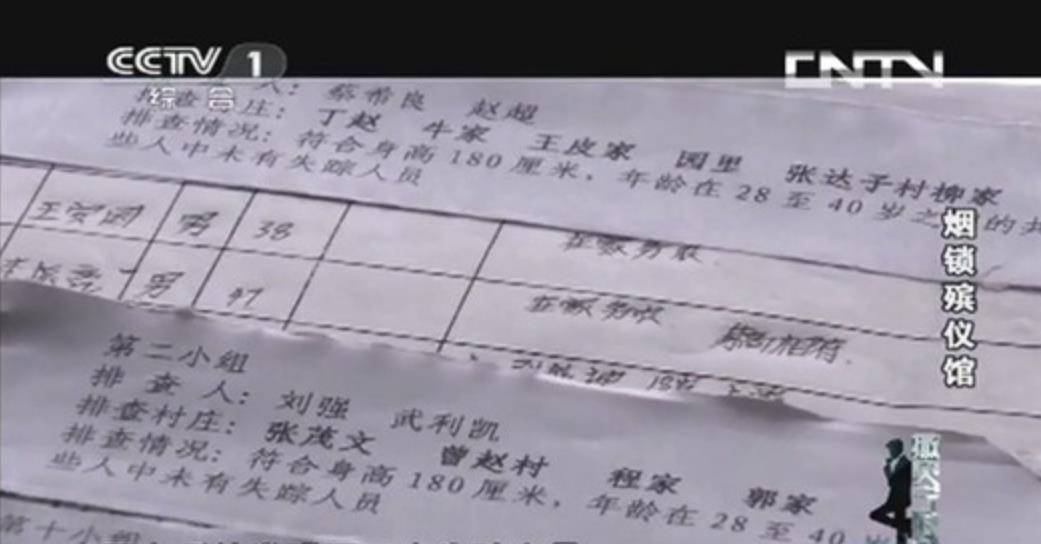 CCTV 1
综合
CNTV
人：蔡希良 赵超
排查村庄：丁赵 牛家 王皮家 园里 张达子村柳家
排查情况：符合身高180厘米，年龄在28至40岁之 的共
些人中未有失踪人员
男 38
在家务农
男 47
在家务农
第二小组
排查人：刘强 武利凯
排查村庄：张茂文 曾赵村 程家 郭家
排查情况：符合身高180厘米，年龄在28至40岁
些人中未有失踪人员
第十小组
烟锁殡仪馆